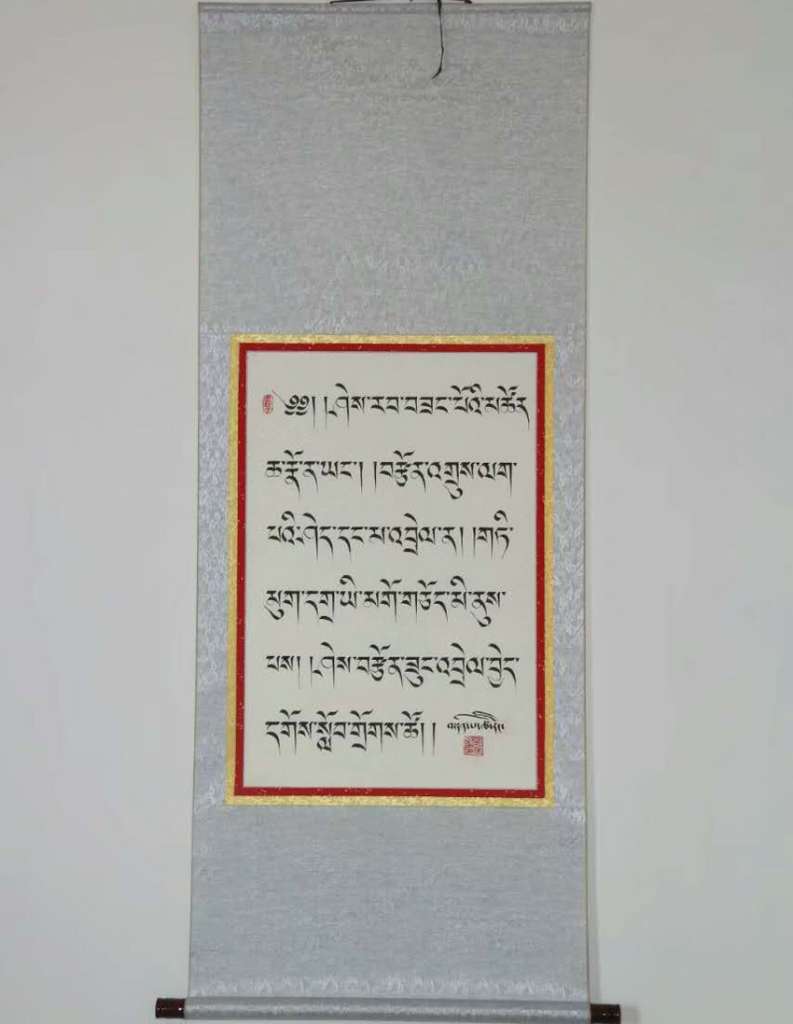 ༄༅། །ཤེས་རབ་བཟང་པོའི་མཚོན
ཆ་རྣོ་ན་ཡང་། །བརྩོན་འགྲུས་ལག་
པའི་ཤེད་དང་མ་འབྲེལ་ན། །གཏི་
མུག་དགྲ་ཡི་མགོ་གཅོད་མི་ནུས་
པས། །ཤེས་བརྩོན་ཟུང་འབྲེལ་བྱེད་
དགོས་སློབ་གྲོགས་ཚོ། །